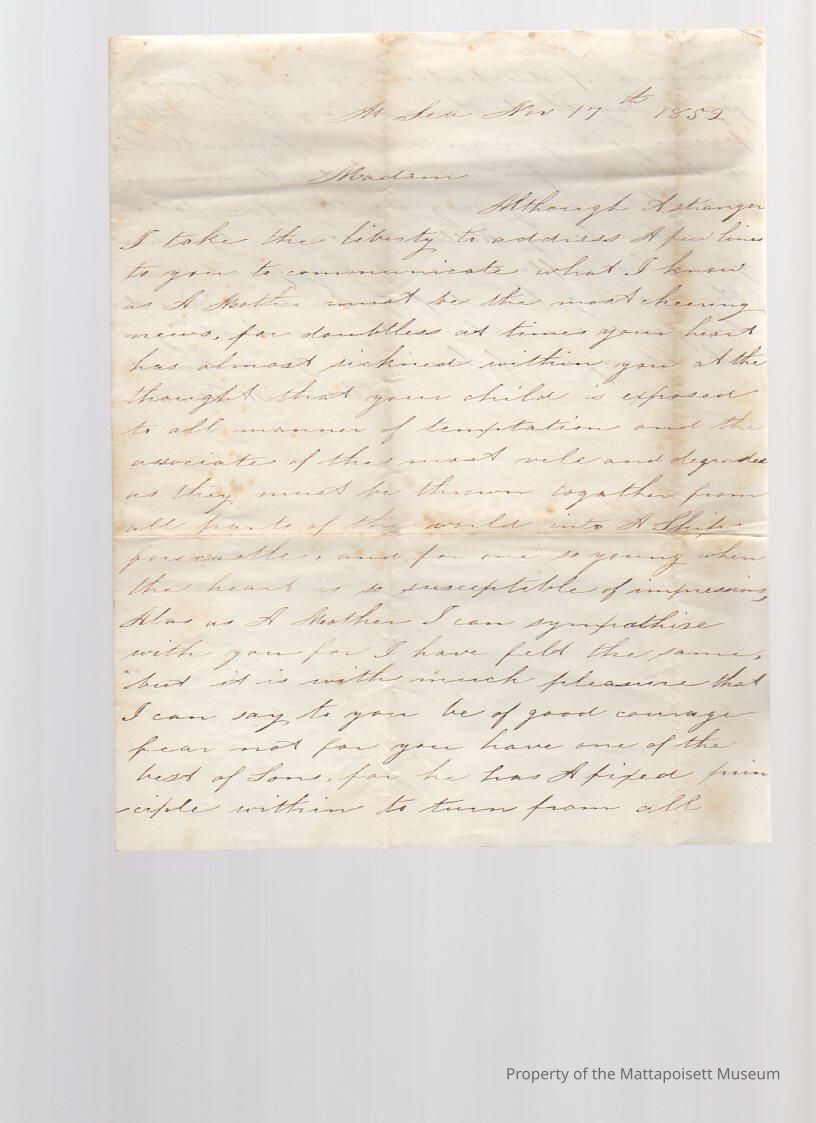 At Sea Nov 17th 1859
Madam
Although A stranger
I take the liberty to address A few lines
to you to communicate what I know
as A Mother must be the most cheering
news, for doubtless at times your heart
has almost sickned within you at the
thought that your child is exposed
to all manner of temptation and the
associate of the most vile and degraded
as they must be thrown together from
all parts of the world into A Ships
forecastle, and for one so young when
the heart is so susceptible of impressions,
Alas as A Mother I can sympathise
with you for I have feld the same,
but it is with much pleasure that
I can say to you be of good courage
fear not for you have one of the
best of Sons, for he has A fixed prin
ciple within to turn from all
Property of the Mattapoisett Museum